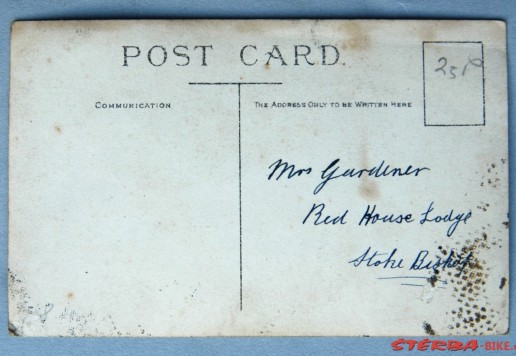 POST CARD.
251º
COMMUNICATION
THE ADDRESS ONLY TO BE WRITTEN HERE
Mrs Gardener
Red House Lodge
Stoke Bishop
STERBA-BIKE.